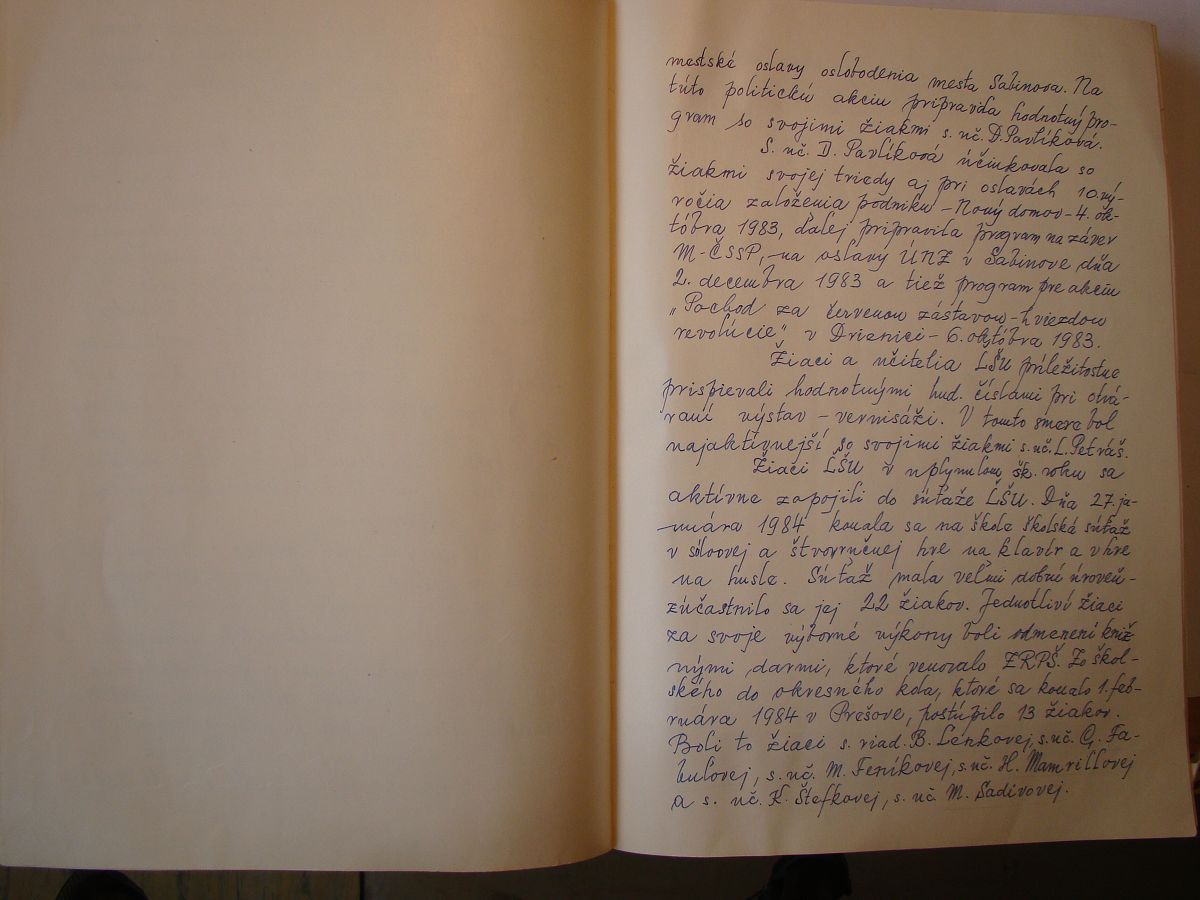 mestské oslavy oslobodenia mesta Sabinova. Na
túto politickú akciu pripravila hodnotný pro-
gram so svojimi žiakmi s. uč. D. Pavlíková.
S. uč. D. Pavlíková účinkovala so
žiakmi svojej triedy aj pri oslavách 10. vý-
ročia založenia podniku - Nový domov - 4. ok-
tóbra 1983, ďalej pripravila program na záver
M-ČSSP, - na oslavy ÚNZ v Sabinove dňa
2. decembra 1983 a tiež program pre akciu
„Pochod za červenou zástavou - hviezdou
revolúcie" v Drienici - 6. októbra 1983.
Žiaci a učitelia ĽŠU príležitostne
prispievali hodnotnými hud. číslami pri otvá-
raní výstav - vernisáži. V tomto smere bol
najaktívnejší so svojimi žiakmi s. uč. L. Petráš.
Žiaci ĽŠU v uplynulom šk. roku sa
aktívne zapojili do súťaže ĽŠU. Dňa 27. ja-
nuára 1984 konala sa na škole školská súťaž
v sólovej a štvorručnej hre na klavír a v hre
na husle. Súťaž mala veľmi dobrú úroveň -
zúčastnilo sa jej 22 žiakov. Jednotliví žiaci
za svoje výborné výkony boli odmenení kniž
nými darmi, ktoré venovalo ZRPŠ. Zo škol-
ského do okresného kola, ktoré sa konalo 1. feb-
ruára 1984 v Prešove, postúpilo 13 žiakov.
Boli to žiaci s. riad. B. Lenkovej, s. uč. G. Fa-
buľovej, s. uč. M. Feníkovej, s. uč. H. Mamrillovej
a s. uč. K. Štefkovej, s. uč. M. Sadivovej.